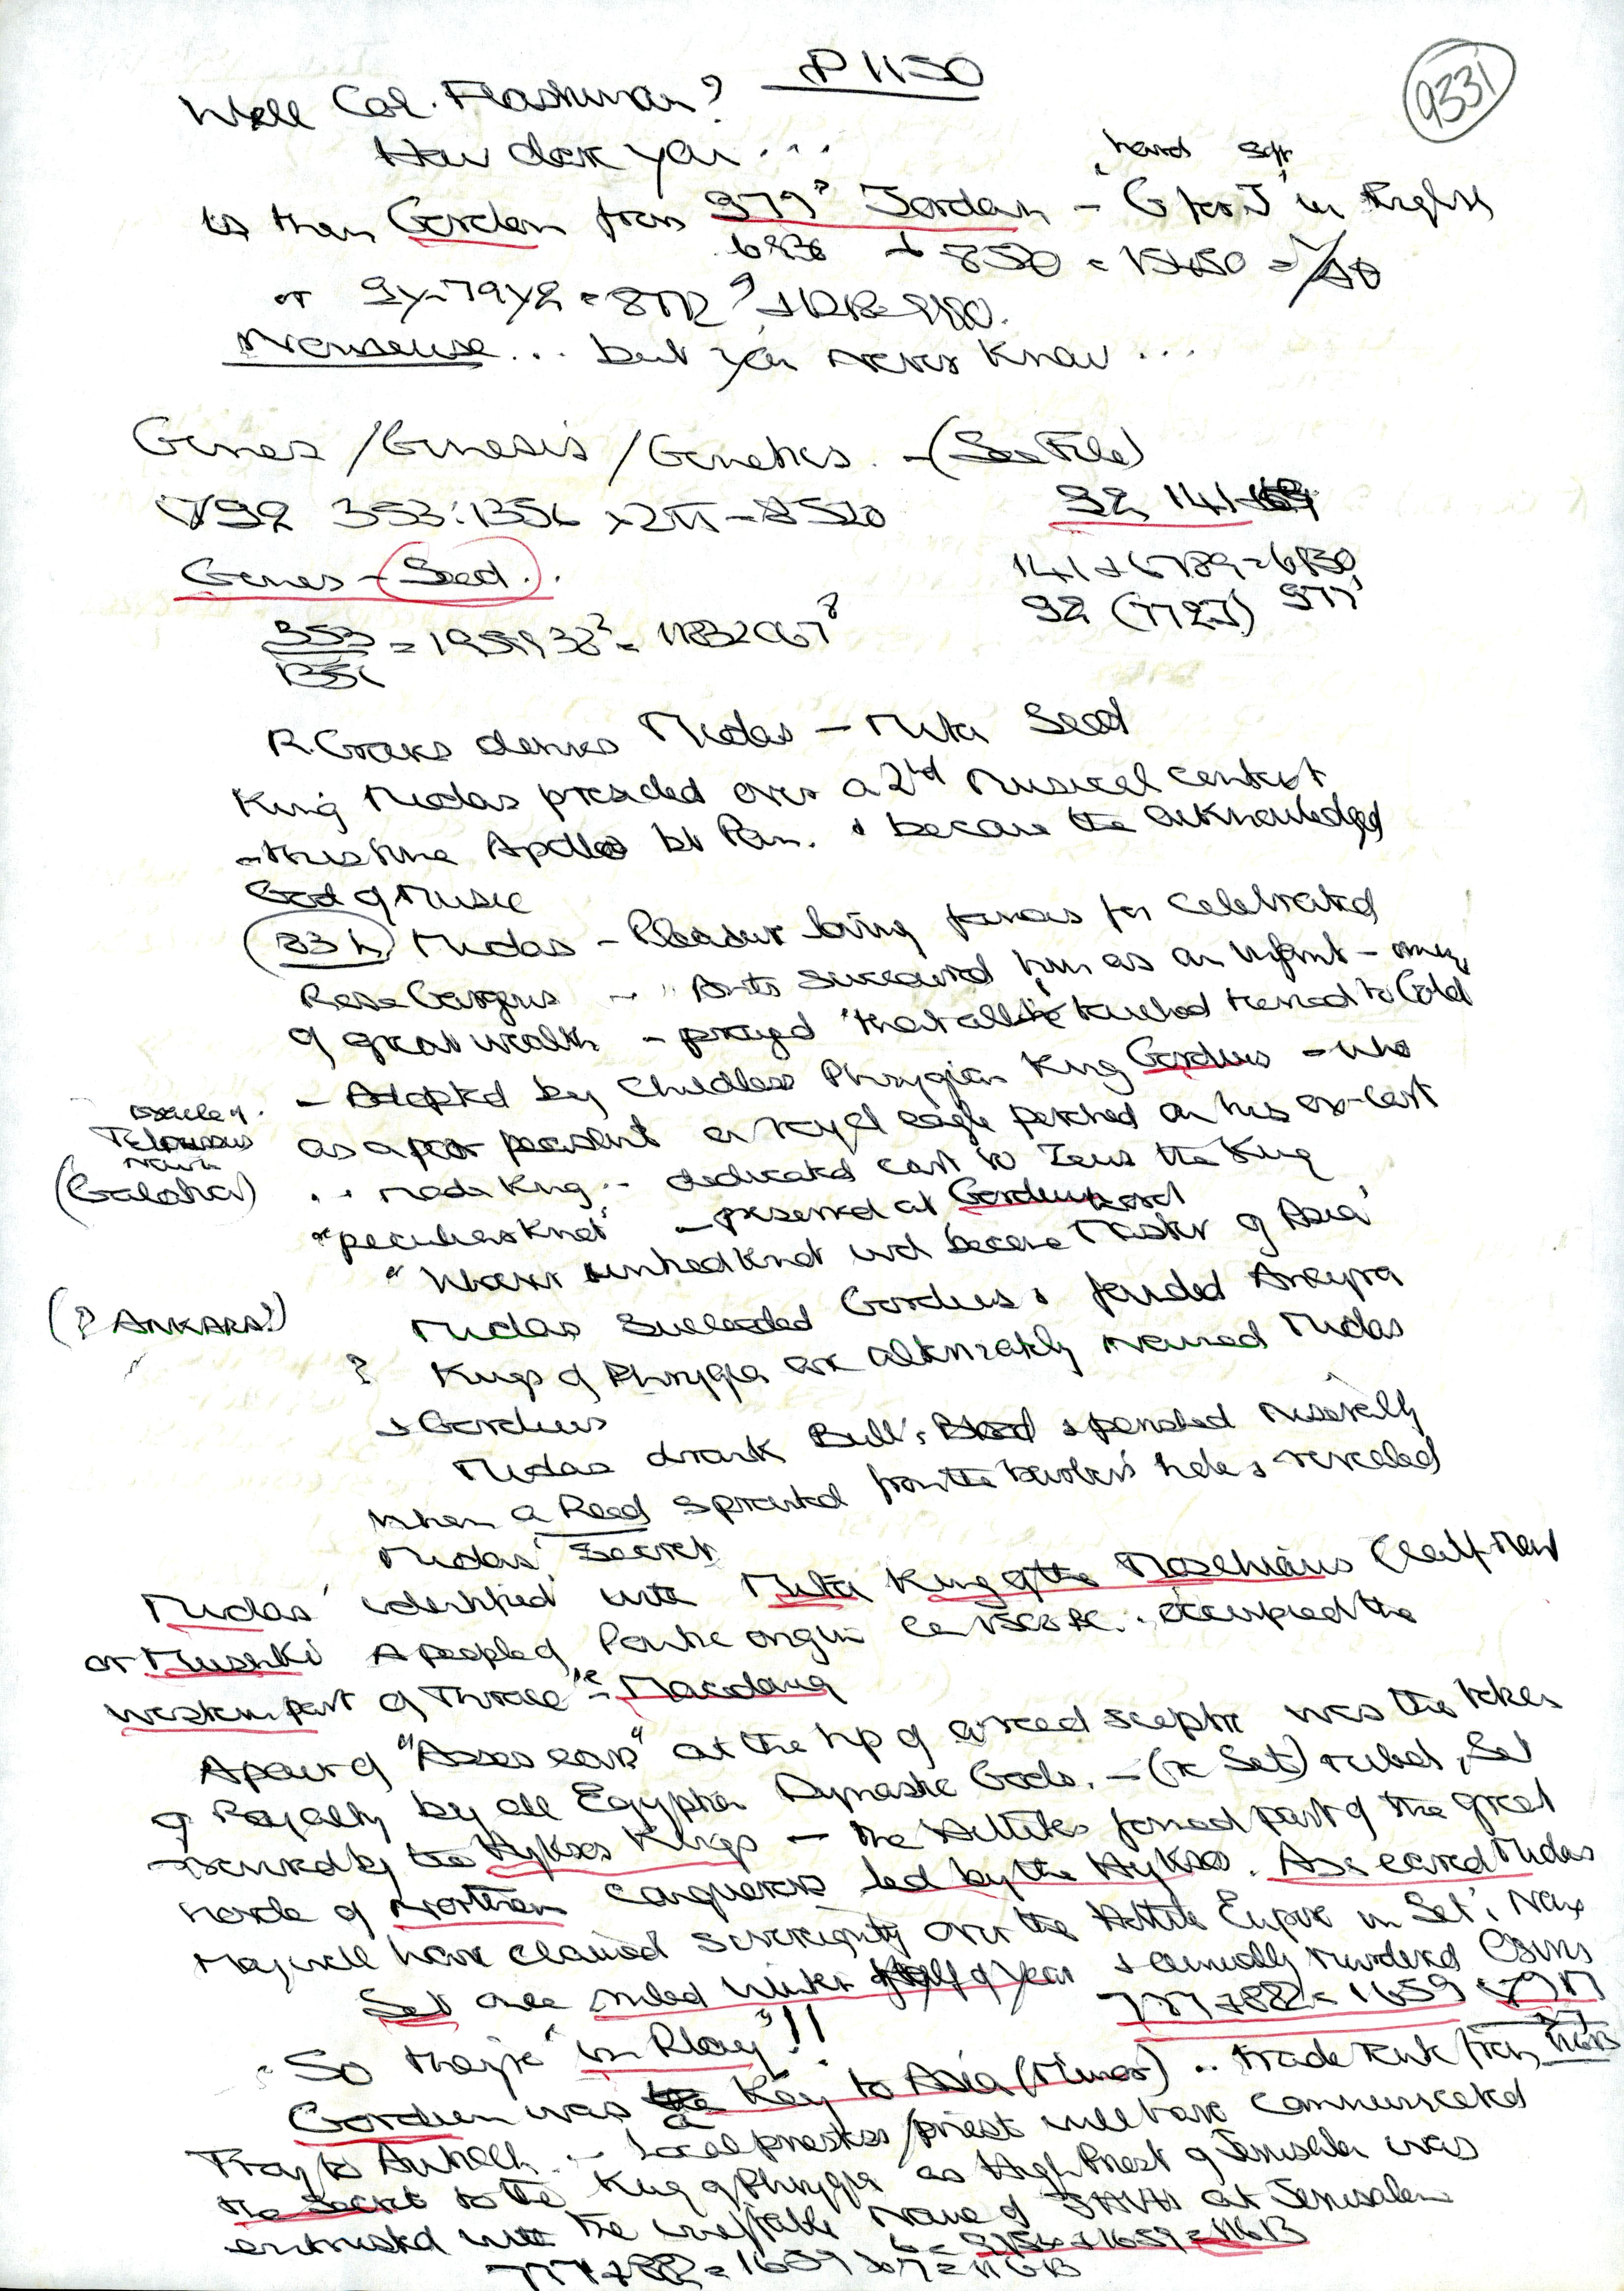 P 1150
9331
Well Col. Flashman?
How dare you . . .
hard soft
Is then Gorden from 979² Jordan - 'G for J' in English
or
Nonsense . . . but you never know . . .
Genes / Genesis / Genetics. - (See File)
792 353:1356 x 2π = 8520
92, 141
Genes - Seed . .
141 + 6789 = 6930
353
1356
92 (7727) 977²
R. Graves derives Midas - Mita Seed
King Midas presided over a 2nd Musical contest
- this time Apollo bt Pan. & became the acknowledged
God of Music
83 h Midas - Pleasure loving famous for celebrated
Rose Gardens - " Ants succoured him as an infant - omen
of great wealth - prayed 'that all he touched turned to Gold
- Adopted by Childless Phrygian King Gordius - who
Oracle of
Telmissus
now in
(Galatia)
as a poor peasant a royal eagle perched on his ox-cart
. . made King . . dedicated cart to Zeus the King
"peculiar knot" - preserved at Gordium
" Whoever untied knot wd become Master of Asia'
(? ANKARA?)
Midas succeeded Gordius & founded Ancyra
? Kings of Phrygia are alternately named Midas
& Gordius
Midas drank Bull's Blood & perished miserably
when a Reed sprouted from the barber's hole & revealed
Midas' Secret
Midas' identified with Mita King of the Moschians (calf-men
or Mushki A people of Pontic origin occupied the
western part of Thrace - Macedonia
A pair of "Asses ears" at the tip of a reed sceptre was the token
of Royalty by all Egyptian Dynastic Gods. - (Set) ruled, Set
revered by the Hyksos Kings - the Hittites formed part of the great
horde of Northern conquerors led by the Hyksos. Ass eared Midas
May well have claimed sovereignty over the Hittite Empire in Set's Name
Set once ruled Winter Half of Year & annually murdered Osiris
777 + 882 = 1659
So they're "in Play"!!
Gordium was a Key to Asia (Minor) . . trade route from
Troy to Antioch. . . Local priestess / priest will have communicated
the secret to the King of Phrygia as High Priest of Jerusalem was
entrusted with the ineffable name of JHVH at Jerusalem
777 + 882 = 1659